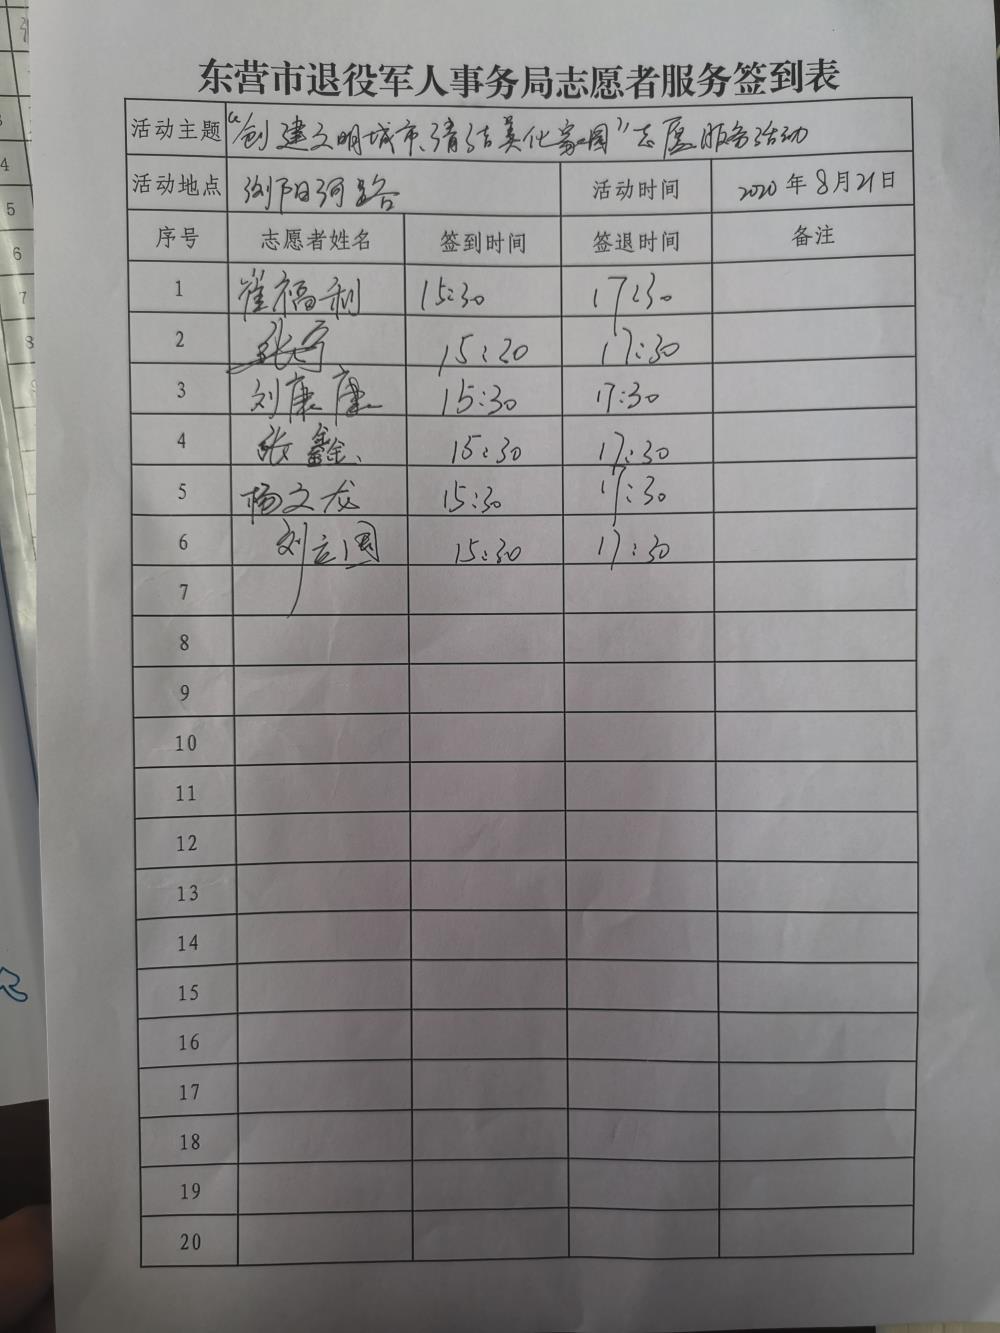 东营市退役军人事务局志愿者服务签到表
活动主题 “创建文明城市、清洁美化家园”志愿服务活动
活动地点 浏阳河路 活动时间 2020年8月21日
序号 志愿者姓名 签到时间 签退时间 备注
1 崔福利 15:30 17:30
2 15:20 17:30
3 刘康康 15:30 17:30
4 张鑫 15:30 17:30
5 杨文龙 15:30 17:30
6 刘立国 15:30 17:30
7
8
9
10
11
12
13
14
15
16
17
18
19
20